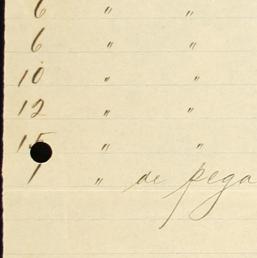 6 " "
6 " "
10 " "
12 " "
15 " "
1 " de pega